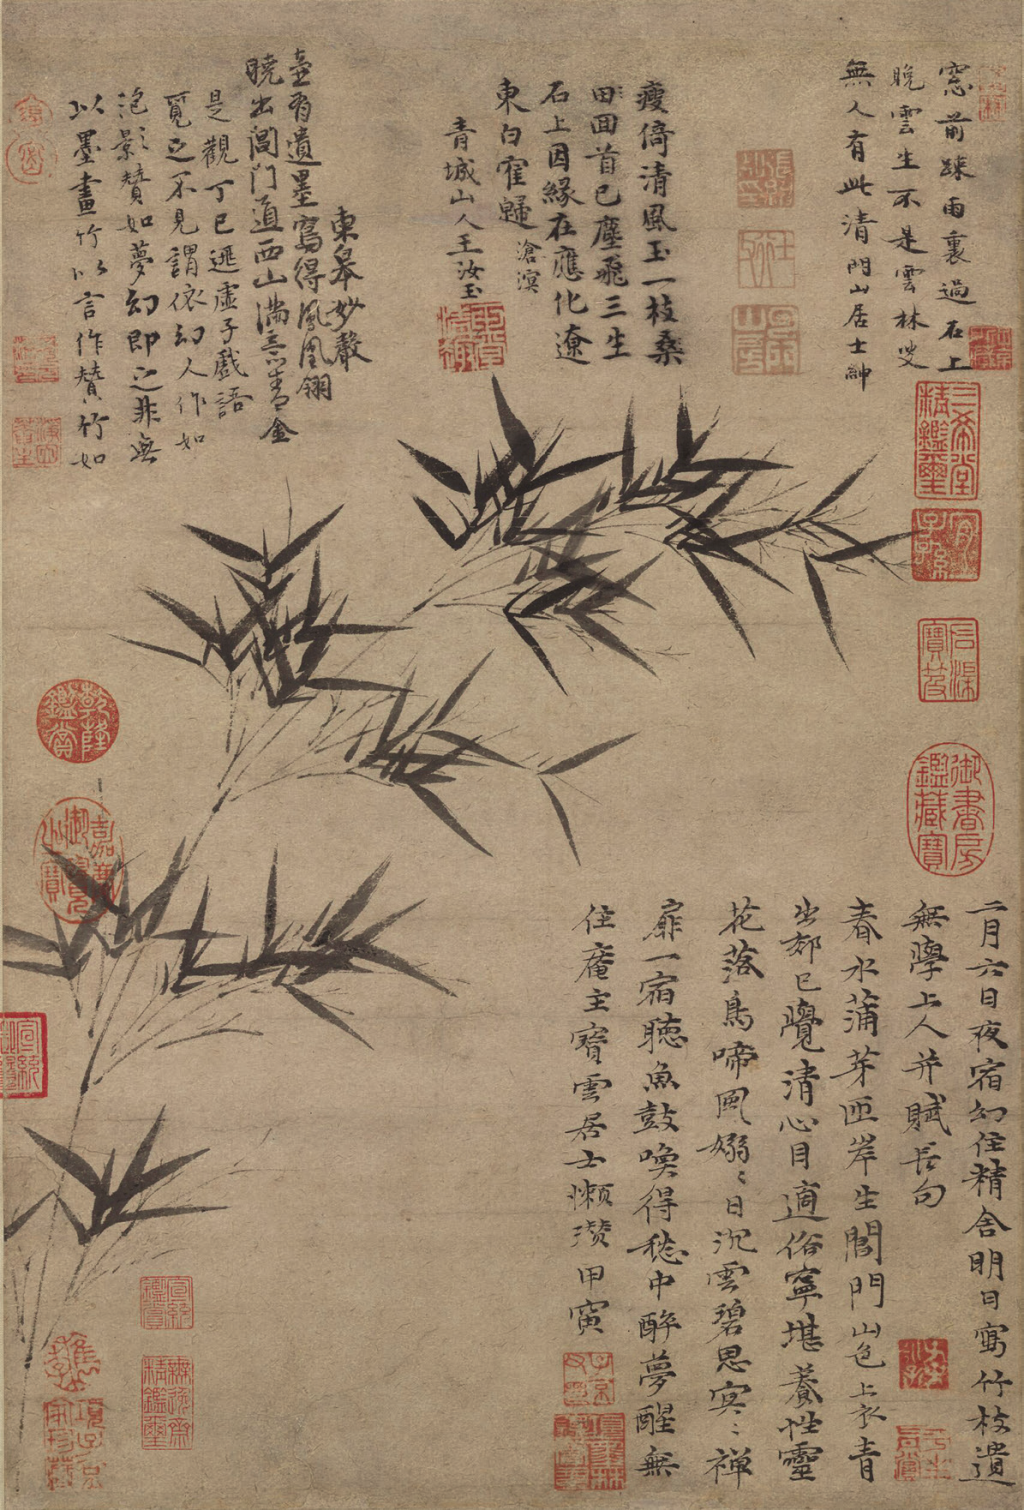 窓前疎雨裏過石上
晚雲生不是雲林叟
無人有此清 門山居士紳
瘦倚清風玉一枝桑
田回首已塵飛三生
石上因緣在應化遼
東白隺歸 滄溟
青城山人王汝玉
東皋妙聲
壼有遺墨寫得鳳凰翎
曉出閶門道西山滿意青金
是觀丁已遯虛子戲語
覓之不見謂依幻人作如
泡影贊如夢幻即之非無
以墨畫竹以言作贊竹如
二月六日夜宿幻住精舍明日寫竹枝遺
無學上人并賦長句
春水蒲芽匝岸生閶門山色上衣青
出郊已覺清心目適俗寧堪養性靈
花落鳥啼風嫋〻日沉雲碧思冥〻禪
扉一宿聽魚鼓喚得愁中醉夢醒無
住菴主寶雲居士懶瓚甲寅
三希堂
精鑑璽
宜子孫
石渠
寶笈
御書房
鑑藏寶
乾隆
鑑賞
嘉慶
御覽
之寶
宣統
鑑賞
無逸齋
精鑑璽